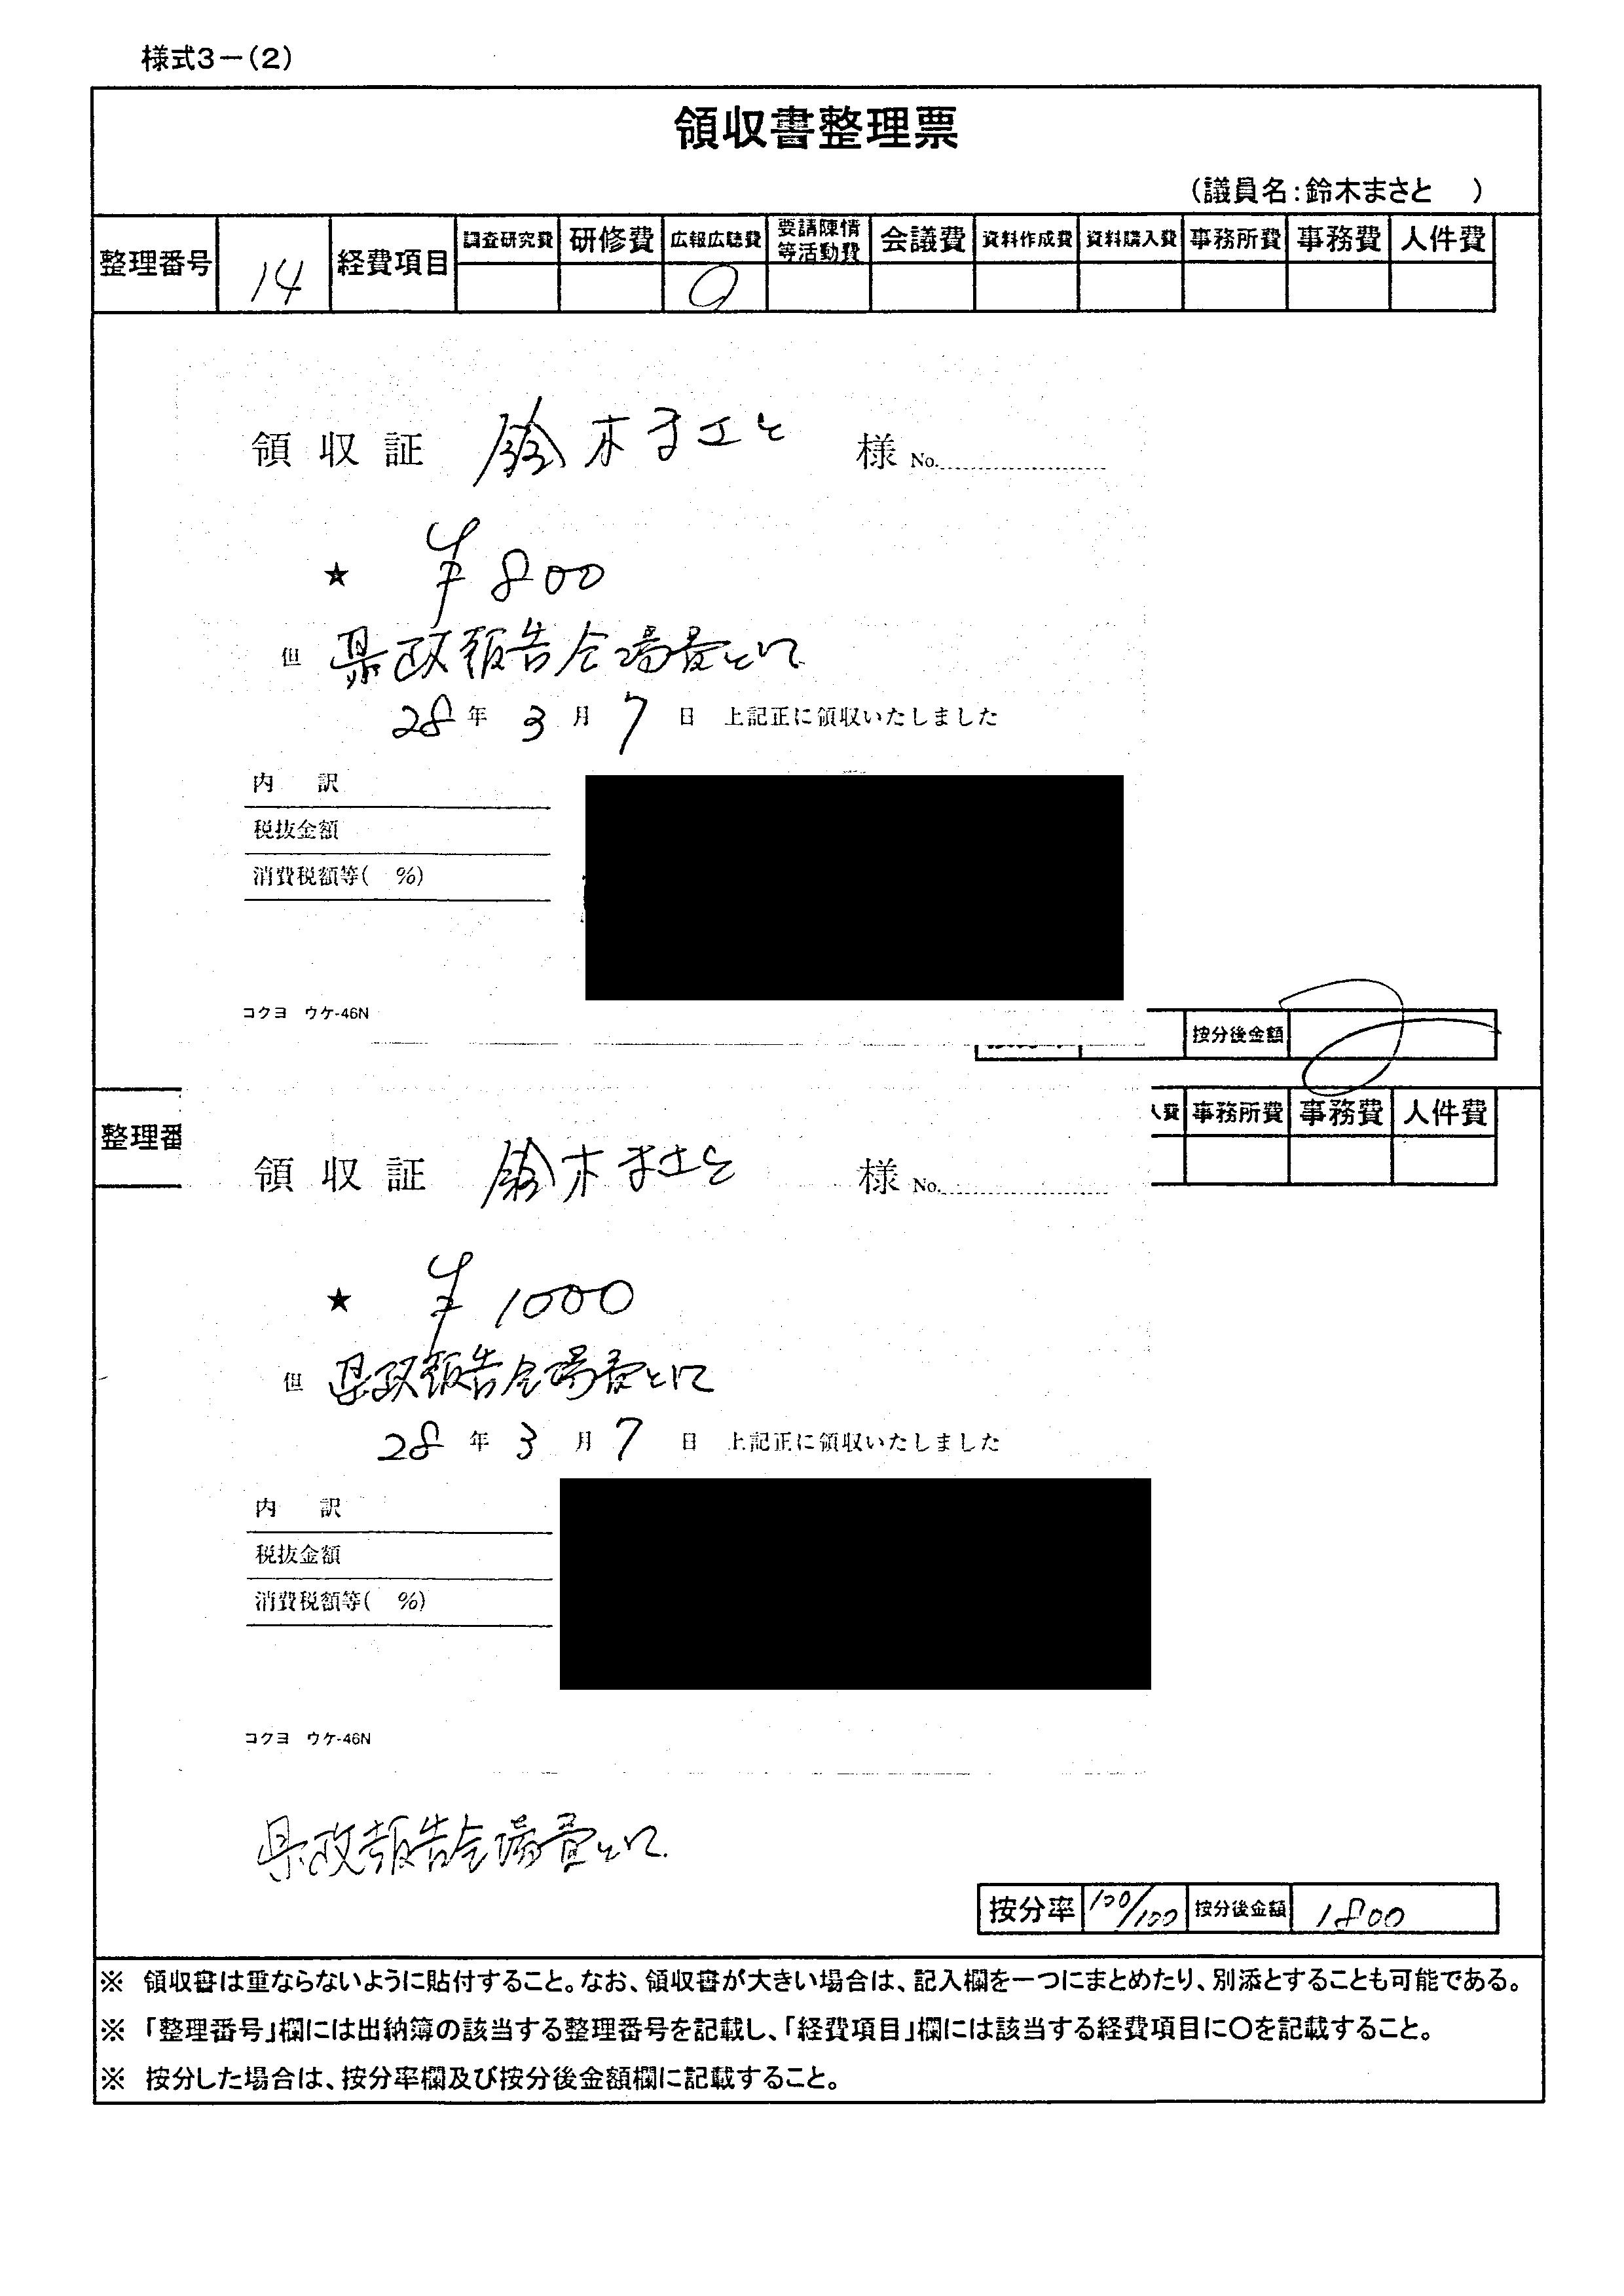 様式3－(2)
領収書整理票
（議員名：鈴木まさと　）
整理番号 14 経費項目 調査研究費 研修費 広報広聴費 要請陳情等活動費 会議費 資料作成費 資料購入費 事務所費 事務費 人件費
○
領収証 鈴木まさと 様 No.
★ ¥800
但 県政報告会場費として
28年3月7日 上記正に領収いたしました
内 訳
税抜金額
消費税額等( %)
コクヨ ウケ-46N
按分後金額
整理番 入費 事務所費 事務費 人件費
領収証 鈴木まさと 様 No.
★ ¥1000
但 県政報告会場費として
28年3月7日 上記正に領収いたしました
内 訳
税抜金額
消費税額等( %)
コクヨ ウケ-46N
県政報告会場費として
按分率 100/100 按分後金額 1800
※ 領収書は重ならないように貼付すること。なお、領収書が大きい場合は、記入欄を一つにまとめたり、別添とすることも可能である。
※ 「整理番号」欄には出納簿の該当する整理番号を記載し、「経費項目」欄には該当する経費項目に〇を記載すること。
※ 按分した場合は、按分率欄及び按分後金額欄に記載すること。